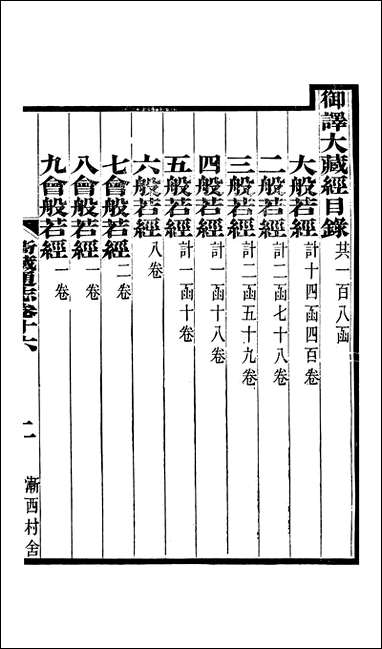 御譯大藏經目錄 共一百八函
大般若經 計十四函四百卷
二般若經 計二函七十八卷
三般若經 計二函五十九卷
四般若經 計一函十八卷
五般若經 計一函十卷
六般若經 八卷
七會般若經 二卷
八會般若經 一卷
九會般若經 一卷
衞藏通志卷十六 二 漸西村舍